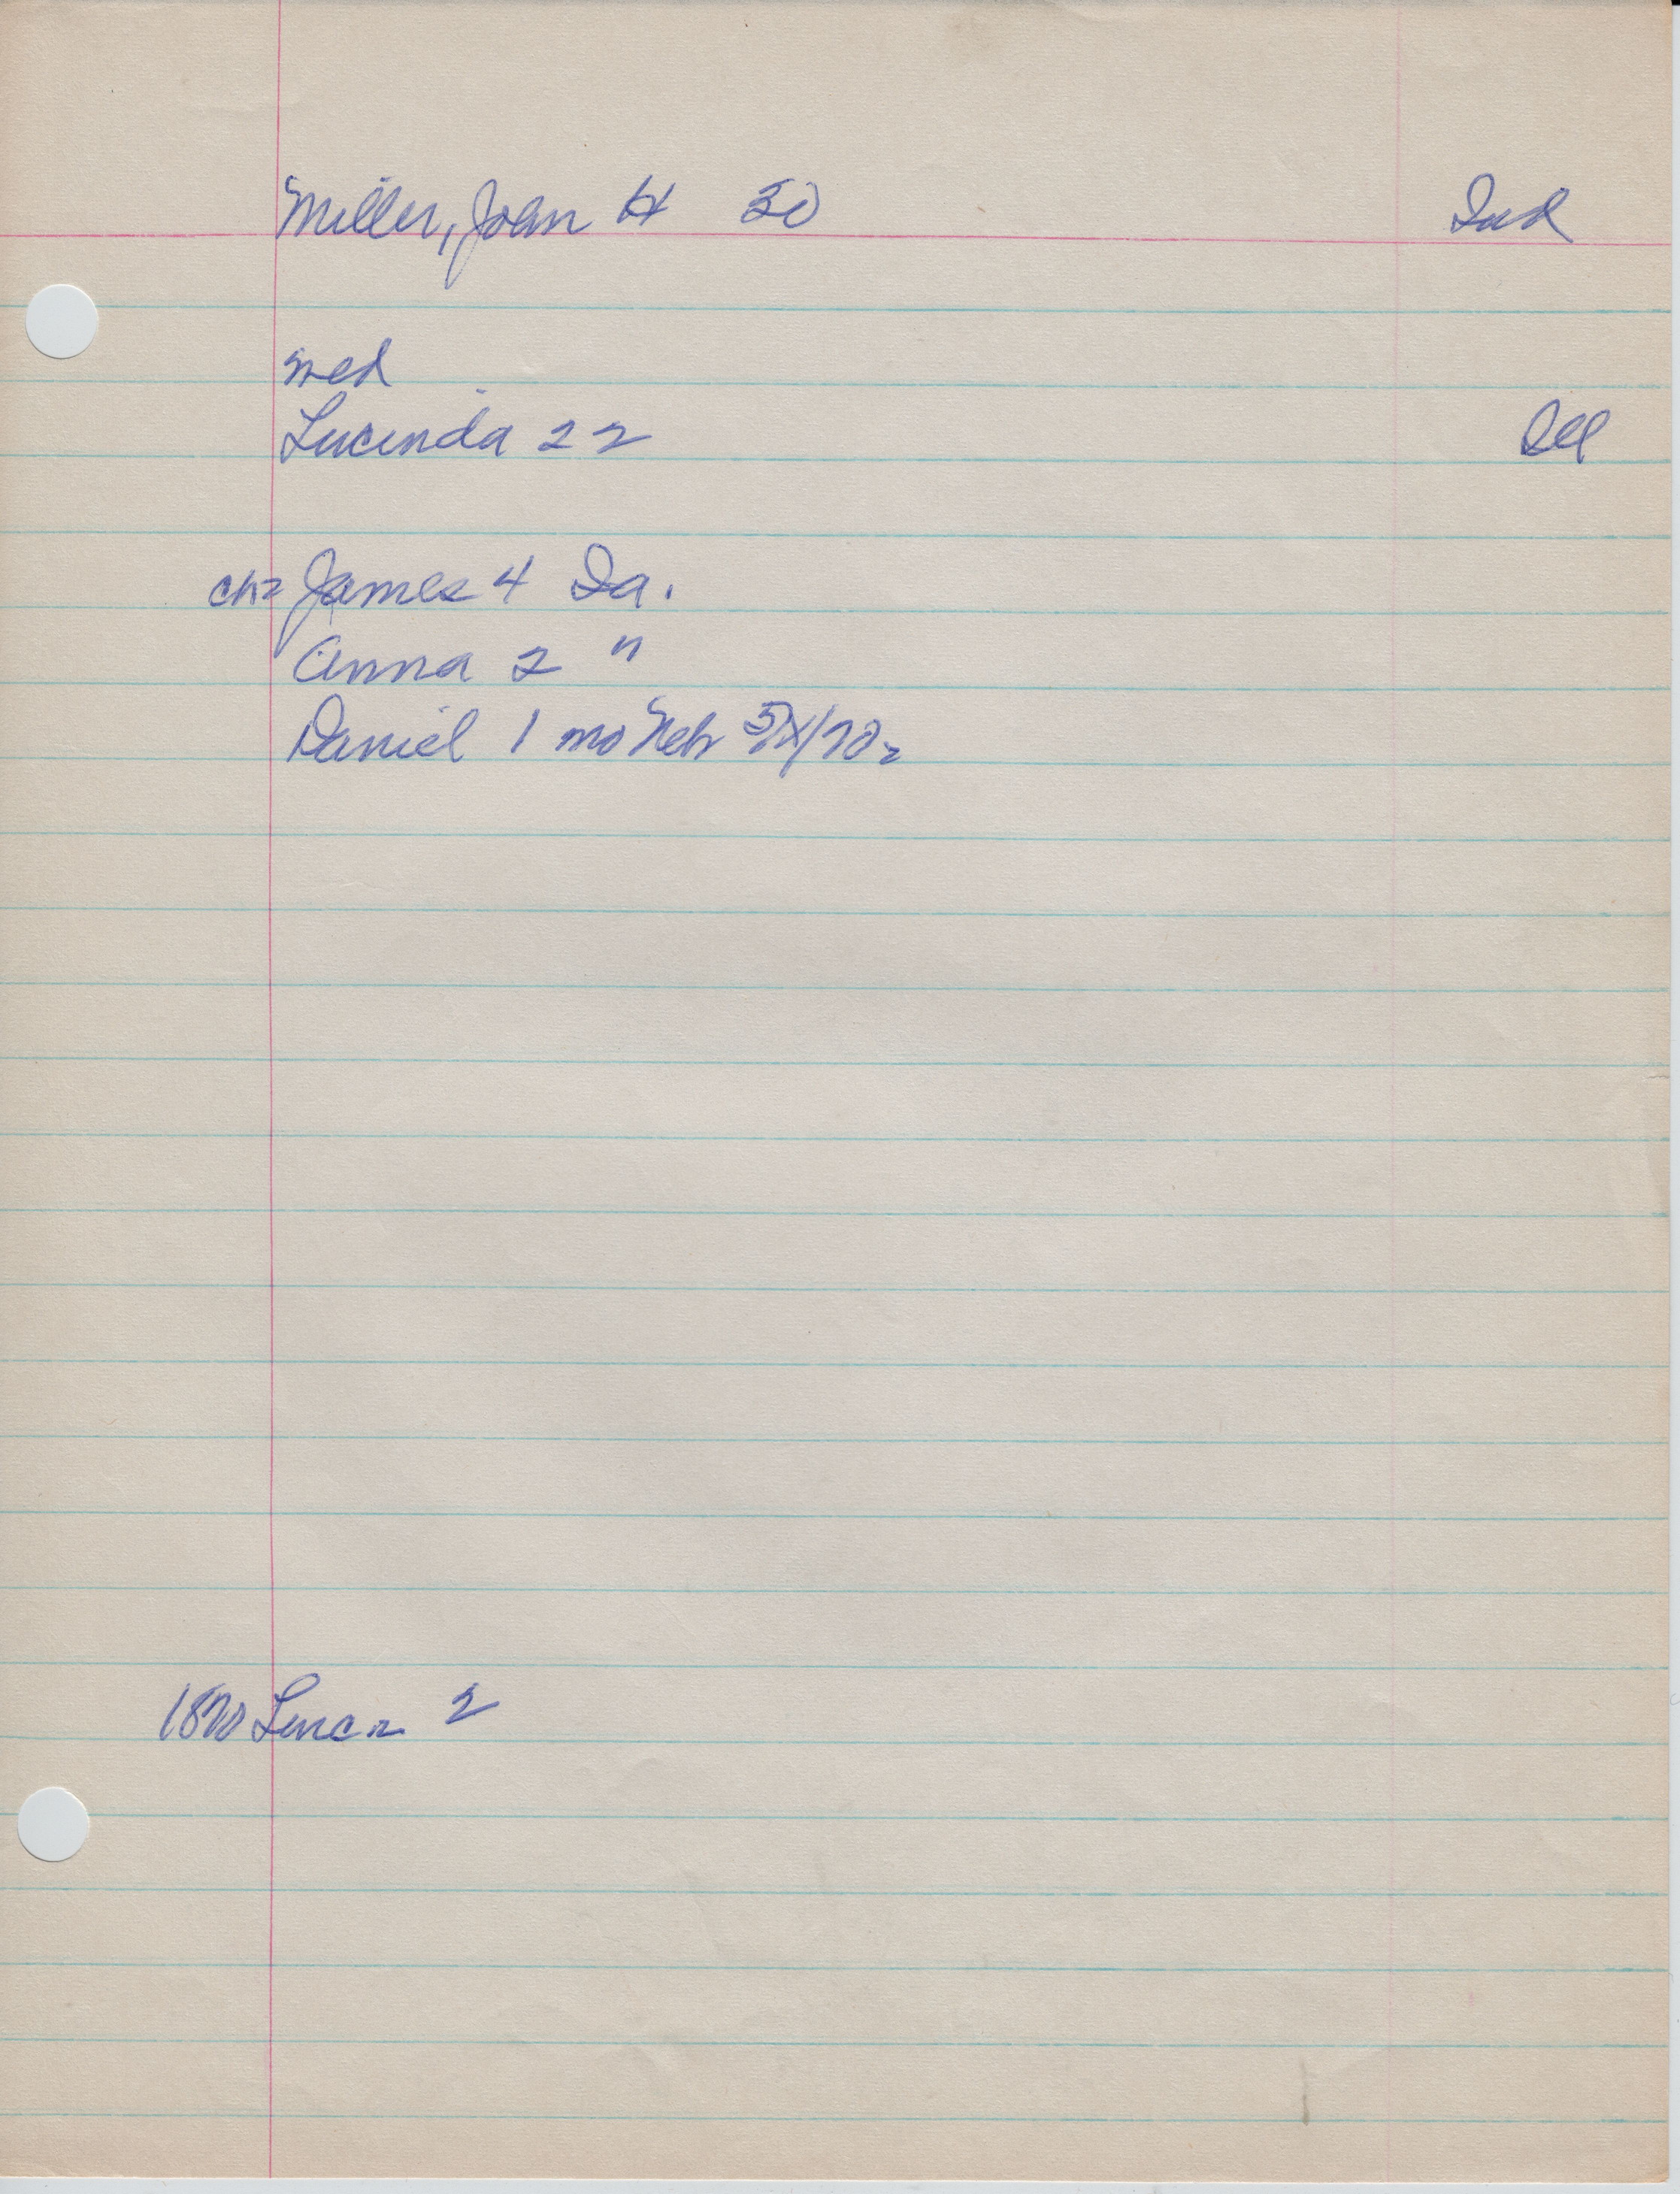 Miller, John H 30 Ind
med
Lucinda 22 Ill
ch= James 4 Ia.
Anna 2 "
Daniel 1 mo Neb /70
1870 2